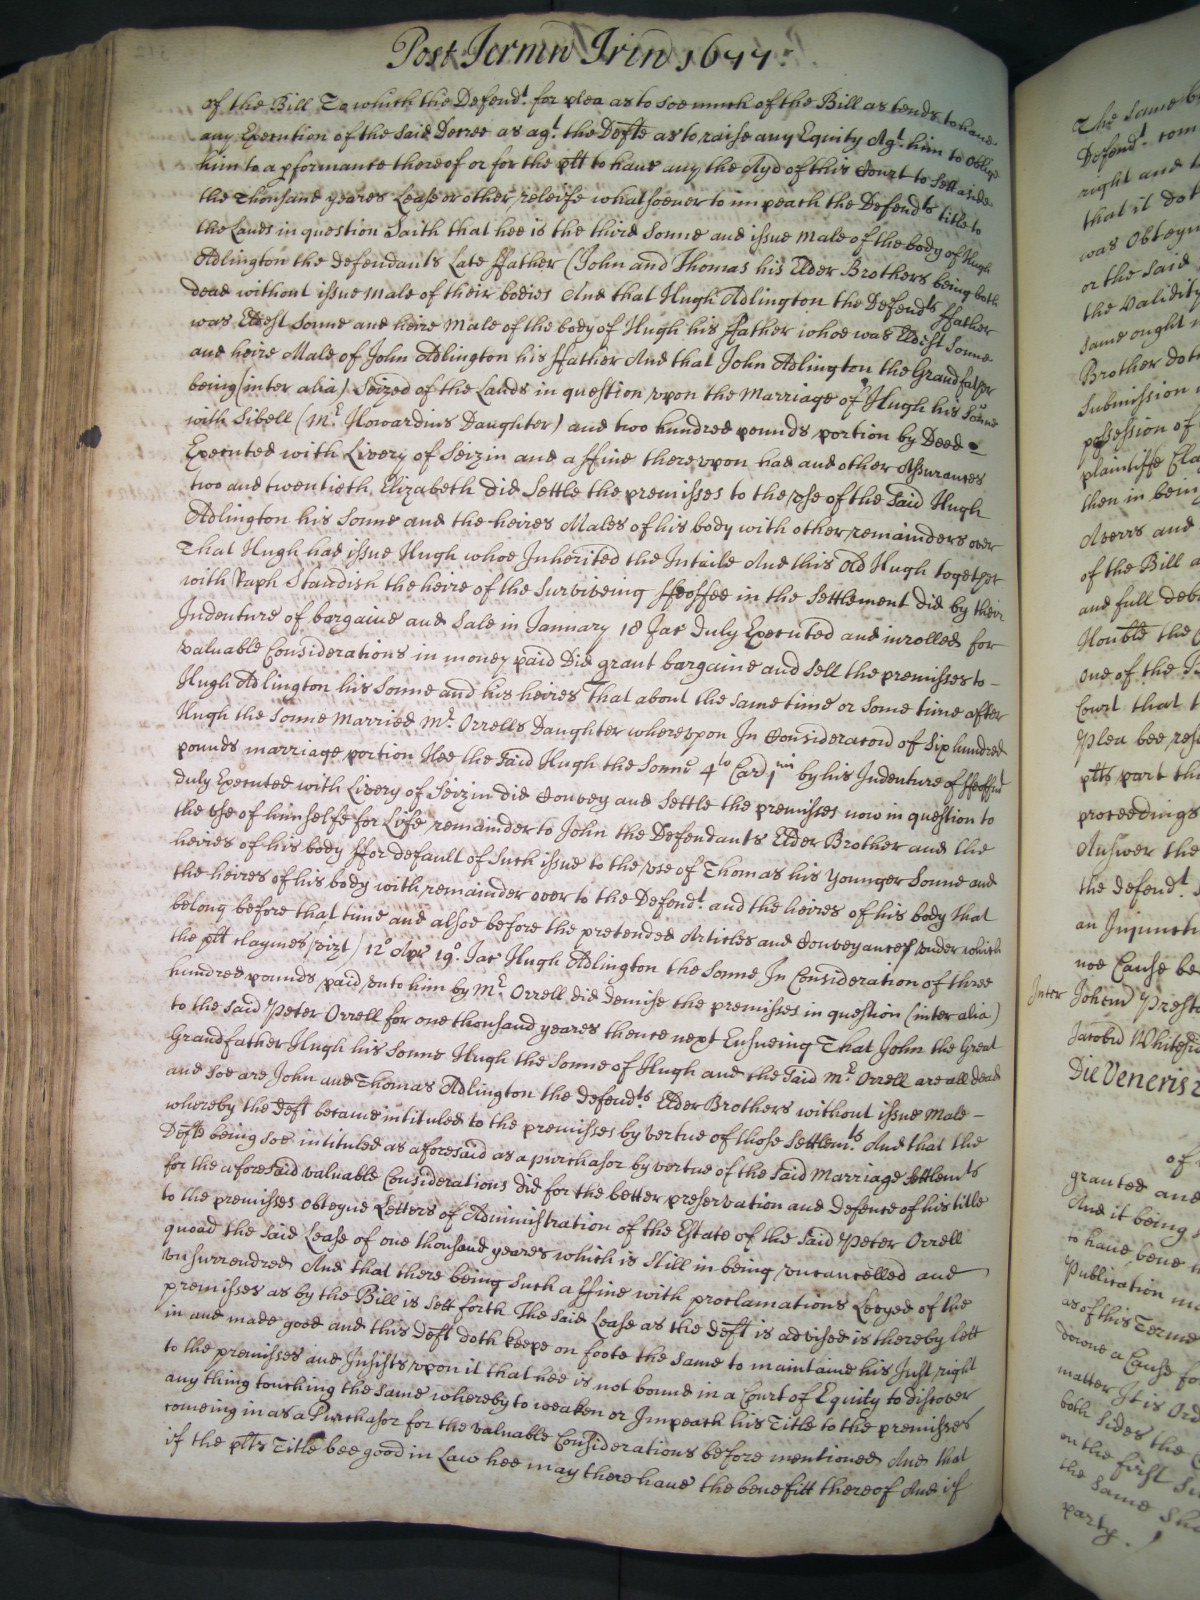 Post Termn Trin 1677:
of the Bill To which the Defendt. for plea as to soe much of the Bill as tends to haue
any Execution of the said Decree as agt. the Defte as to raise any Equity Agt. him to oblige
him to a pformance thereof or for the plt to haue any the Ayd of this Court to sett aside
the Thousand yeares Lease or other releife whatsoever to impeach the Defendts title to
the Lands in question Saith that hee is the third Sonne and issue Male of the body of Hugh
Adlington the defendants Late ffather (John and Thomas his Elder Brothers being both
dead without issue Male of their bodies And that Hugh Adlington the Defendts ffather
was Eldest Sonne and heire Male of the body of Hugh his ffather whoe was Eldest Sonne
and heire Male of John Adlington his ffather And that John Adlington the Grandfather
being (inter alia) Seized of the Lands in question vpon the Marriage of Hugh his Sonne
with Sibell (Mr. Howardins Daughter) and two hundred pounds portion by Deed
Executed with Livery of Seizin and a ffine therevpon had and other Assurances
two and twentieth Elizabeth did Settle the premisses to the vse of the said Hugh
Adlington his Sonne and the heires Males of his body with other remainders over
That Hugh had issue Hugh whoe Inherited the Intaile And this old Hugh together
with Raph Standish the heire of the Surviveing ffeoffee in the Settlement did by their
Indenture of bargaine and Sale in January 18 Jac Duly Executed and inrolled for
valuable Considerations in money paid did grant bargaine and sell the premisses to -
Hugh Adlington his Sonne and his heires That about the same time or some time after
Hugh the Sonne Married Mr. Orrells Daughter wherevpon In Consideracon of Six hundred
pounds marriage portion Hee the said Hugh the Sonne 4to Car primi by his Indenture of ffeoffmt
duly Executed with Livery of Seizin did Convey and Settle the premisses now in question to
the vse of himselfe for Life remainder to John the Defendants Elder Brother and the
heires of his body ffor default of Such issue to the vse of Thomas his younger Sonne and
the heires of his body with remainder over to the Defendt. and the heires of his body that
belong before that time and alsoe before the pretended Articles and Conveyances vnder which
the plt claymes (vizt) 12o Apr 19o. Jac Hugh Adlington the Sonne In Consideration of three
hundred pounds paid vnto him by Mr. Orrell did demise the premisses in question (inter alia)
to the said Peter Orrell for one thousand yeares thence next Ensueing That John the Great
Grandfather Hugh his Sonne Hugh the Sonne of Hugh and the said Mr. Orrell are all dead
and soe are John and Thomas Adlington the defendts. Elder Brothers without issue Male -
whereby the Deft became intituled to the premisses by vertue of those Settlemts. And that the
Defte being soe intituled as aforesaid as a purchasor by vertue of the said Marriage Settlemts
for the aforesaid valuable Considerations did for the better preservation and defence of his title
to the premisses obteyne Letters of Administration of the Estate of the said Peter Orrell
quoad the said Lease of one thousand yeares which is Still in being vncancelled and
vnsurrendred And that there being Such a ffine with proclamations Levyed of the
premisses as by the Bill is sett forth The said Lease as the deft is advised is thereby lett
in and made good and this Deft doth keepe on foote the same to maintaine his Just right
to the premisses and Insists vpon it that hee is not bound in a Court of Equity to discover
any thing touching the same whereby to weaken or Impeach his Title to the premisses
comeing in as a Purchasor for the valuable Considerations before mentioned And that
if the plts Title bee good in Law hee may there haue the benefitt thereof And if
The same b
Defendt. com
right and t
that it dot
was Obteyn
or the said
the validity
same ought
Brother doth
Submission
possession of
plaintiffe Cla
then in being
Averrs and
of the Bill a
and full deb
Honble the
one of the
Court that t
Plea bee res
plts part th
proceedings
Answer the
the defendt.
an Injuncti
noe Cause be
Inter Johem Presto
Jacobu Whitesi
Die Veneris 2
of
granted and
And it being
to haue bene
Publication
as of this Terme
downe a Cause for
matter It is Ord
both sides the
on the first
the same sha
party.